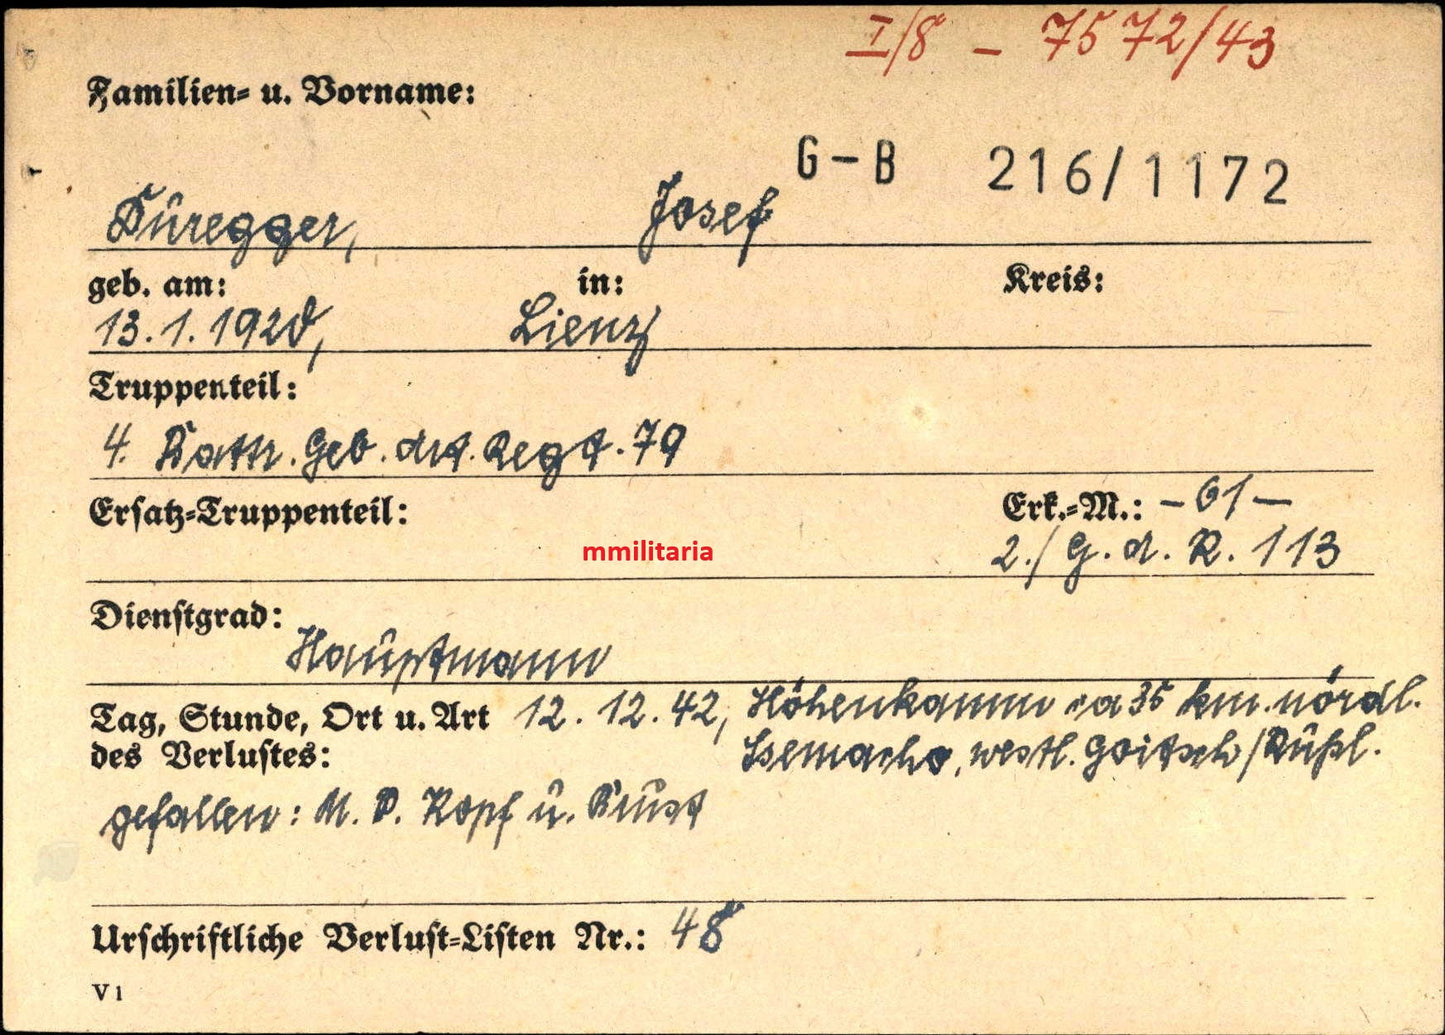 I/8 - 7572/43
Familien= u. Vorname:
G-B 216/1172
Düregger, Josef
geb. am: in: Kreis:
13.1.1920, Lienz
Truppenteil:
4. Battr. Geb. Art. Regt. 79
Ersatz=Truppenteil: Erk.=M.: -61-
mmilitaria
2./G. A. R. 113
Dienstgrad:
Hauptmann
Tag, Stunde, Ort u. Art 12.12.42, Höhenkamm ca 35 km. nördl.
des Verlustes: westl. Goitsch/Rußl.
gefallen: Kopf u. Brust
Urschriftliche Verlust=Listen Nr.: 48
V 1